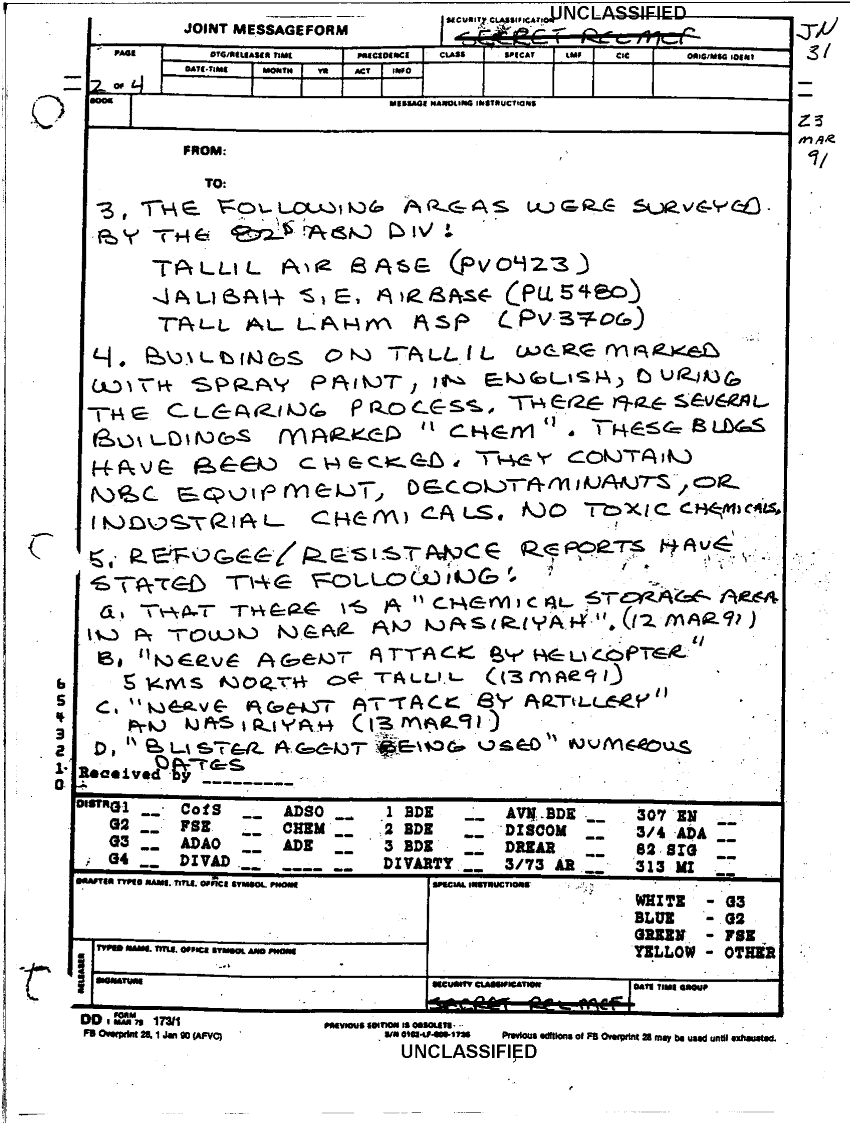 UNCLASSIFIED
JOINT MESSAGEFORM
SECURITY CLASSIFICATION
SECRET RELMCF
JN
31
PAGE
DTG/RELEASER TIME
PRECEDENCE
CLASS
SPECAT
LMF
CIC
ORIG/MSG IDENT
DATE-TIME
MONTH
YR
ACT
INFO
2 OF 4
BOOK
MESSAGE HANDLING INSTRUCTIONS
23
MAR
91
FROM:
TO:
3. THE FOLLOWING AREAS WERE SURVEYED
BY THE 82D ABN DIV:
TALLIL AIR BASE (PV0423)
JALIBAH S.E. AIRBASE (PU5480)
TALL AL LAHM ASP (PV3706)
4. BUILDINGS ON TALLIL WERE MARKED
WITH SPRAY PAINT, IN ENGLISH, DURING
THE CLEARING PROCESS. THERE ARE SEVERAL
BUILDINGS MARKED "CHEM". THESE BLDGS
HAVE BEEN CHECKED. THEY CONTAIN
NBC EQUIPMENT, DECONTAMINANTS, OR
INDUSTRIAL CHEMICALS. NO TOXIC CHEMICALS.
5. REFUGEE/RESISTANCE REPORTS HAVE
STATED THE FOLLOWING:
a. THAT THERE IS A "CHEMICAL STORAGE AREA
IN A TOWN NEAR AN NASIRIYAH". (12 MAR91)
B. "NERVE AGENT ATTACK BY HELICOPTER"
5 KMS NORTH OF TALLIL (13MAR91)
C. "NERVE AGENT ATTACK BY ARTILLERY"
AN NASIRIYAH (13MAR91)
D. "BLISTER AGENT BEING USED" NUMEROUS
DATES
6
5
4
3
2
1
0
Received by ---------
DISTR G1 __ CofS __ ADSO __ 1 BDE __ AVN BDE __ 307 EN __
G2 __ FSE __ CHEM __ 2 BDE __ DISCOM __ 3/4 ADA __
G3 __ ADAO __ ADE __ 3 BDE __ DREAR __ 82 SIG __
G4 __ DIVAD __ ____ __ DIVARTY __ 3/73 AR __ 313 MI __
DRAFTER TYPED NAME, TITLE, OFFICE SYMBOL, PHONE
SPECIAL INSTRUCTIONS
WHITE - G3
BLUE - G2
GREEN - FSE
YELLOW - OTHER
RELEASER
TYPED NAME, TITLE, OFFICE SYMBOL AND PHONE
SIGNATURE
SECURITY CLASSIFICATION
SECRET RELMCF
DATE TIME GROUP
DD FORM 1 MAR 79 173/1
PREVIOUS EDITION IS OBSOLETE
FB Overprint 28, 1 Jan 90 (AFVC)
Previous editions of FB Overprint 28 may be used until exhausted.
UNCLASSIFIED